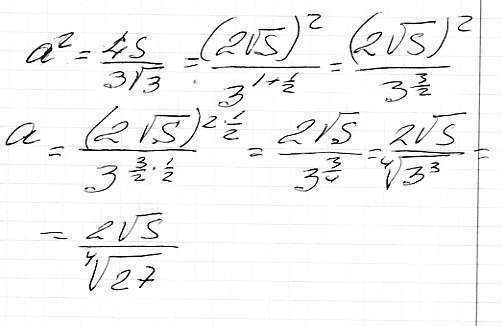 a² = 4S/(3√3) = (2√S)²/3^(1+1/2) = (2√S)²/3^(3/2)
a = (2√S)^(2·1/2)/3^(3/2·1/2) = 2√S/3^(3/4) = 2√S/⁴√(3³) =
= 2√S/⁴√27